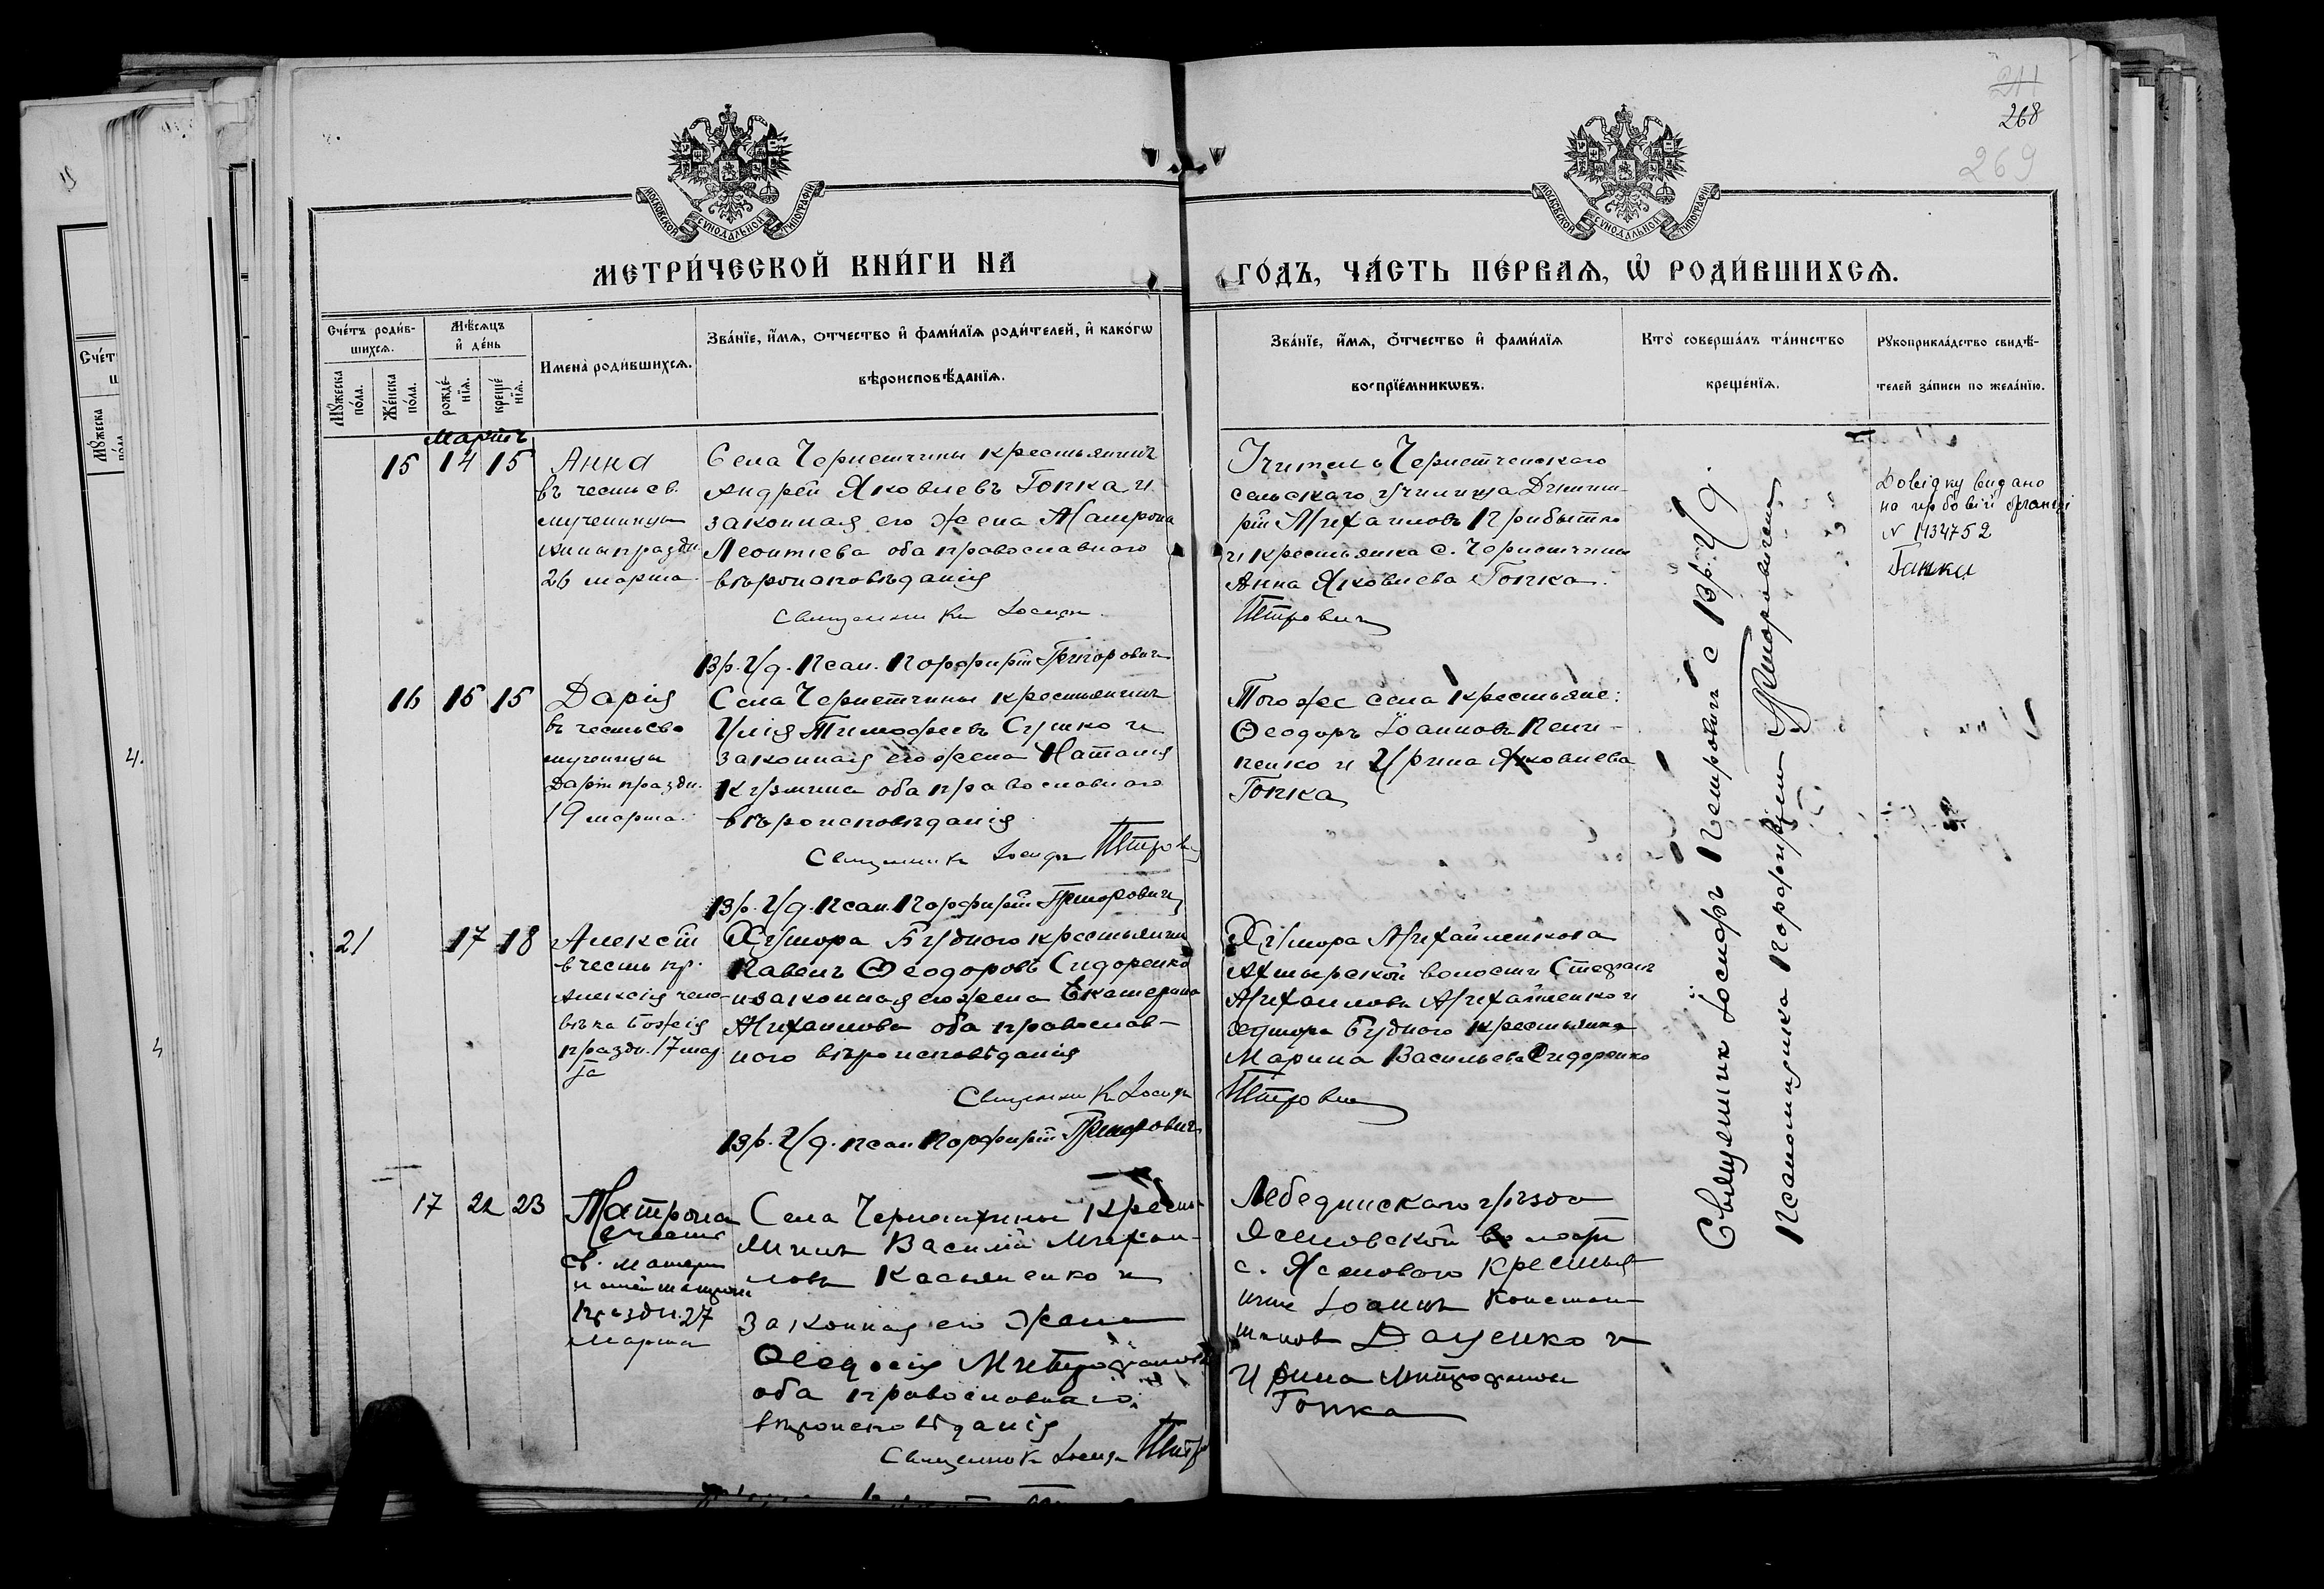 241
268
269
МОСКОВСКОЙ СУНОДАЛЬНОЙ ТИПОГРАФІИ
МОСКОВСКОЙ СУНОДАЛЬНОЙ ТИПОГРАФІИ
МЕТРИ́ЧЕСКОЙ КНИ́ГИ НА
ГО́ДЪ, ЧА́СТЬ ПЕ́РВАЯ, Ѡ РОДИ́ВШИХСЯ.
Сче́тъ роди́в-
шихся.
Мѣ́сяцъ
и де́нь
Мꙋ́жеска по́ла.
Же́нска по́ла.
рожде́нїя.
креще́нїя.
Имена̀ роди́вшихся.
Зва́нїе, и́мя, отчество и фами́лїя роди́телей, и како́гѡ
вѣроисповѣ́данїя.
Зва́нїе, и́мя, отчество и фами́лїя
воспрїе́мникѡвъ.
Кто̀ соверша́лъ та́инство
креще́нїя.
Рꙋкоприкла́дство свидѣ́-
телей за́писи по жела́нїю.
Мартъ
15 14 15
Анна
въ честь св.
мученицы
праздн.
26 марта
Села Чернетчины крестьянинъ
Андрей Яковлевъ Гопка и
законная его жена Матрона
Леонтіева оба православнаго
вѣроисповѣданія
Священникъ Іосифъ
Вр. И/д. Псал. Порфирій Григоровичъ
Учитель Чернетченскаго
сельскаго училища Димит-
рій Михаиловъ Прибытко
и крестьянка с. Чернетчины
Анна Яковлева Гопка.
Петровичъ
Довідку видано
на пробовій
N 1434752
Ганжа
16 15 15
Дарія
въ честь св.
мученицы
Даріи праздн.
19 марта.
Села Чернетчины крестьянинъ
Илія Тимофеевъ Сушко и
законная его жена Наталія
Кузмина оба православнаго
вѣроисповѣданія
Священникъ Іосифъ Петрович
Вр. И/д. Псал. Порфирій Григоровичъ
Того же села крестьяне:
Ѳеодоръ Іоанновъ
и Ирина Яковлева
Гопка
21 17 18
Алексій
в честь пр.
Алексія чело-
вѣка Божія
праздн. 17 мар
та
Хутора Буднаго крестьянинъ
Павелъ Ѳеодоровъ Сидоренко
и законная его жена Екатерина
Михаилова оба православ-
наго вѣроисповѣданія
Священникъ Іосифъ
Вр. И/д. псал Порфирій Григоровичъ
Хутора Михайленкова
Ахтырской волости Стефанъ
Михаиловъ Михайленко и
хутора Буднаго крестьянка
Марина Васильева Сидоренко
Петрович
17 22 23
Матрона
в честь
св.
праздн. 27
Марта
Села Чернетчины кресть-
янинъ Василій Михаи-
ловъ Касьяненко и
законная его жена
Ѳеодосія Митрофанова
оба православнаго
вѣроисповѣданія
Священникъ Іосифъ Петр
Лебединскаго уѣзда
Ясеновской волости
с. Ясеноваго крестья
нинъ Іоаннъ Констан
тинов Даценко и
Ирина Митрофанова
Гопка
Священник Іосифъ Петрович с Вр. И/д.
Псаломщика Порфиріемъ Григоровичемъ